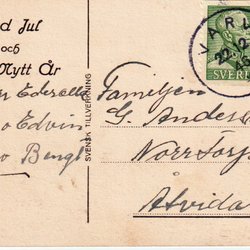 d Jul
och
Nytt År
Edvin
Bengt
SVENSK TILLVERKNING
VARL
22.12
SVERI
Familjen
G. Anders
Norrtorp
Åtvida